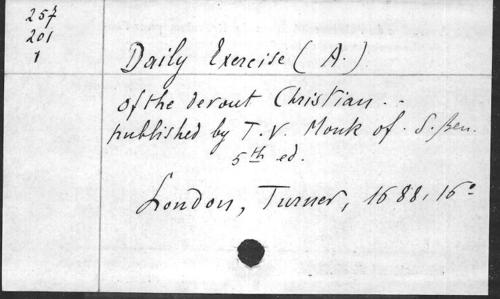 257
201
1
Daily Exercise (A.)
of the devout Christian..
published by T. V. Monk of S. Ben.
5th ed.
London, Turner, 1688, 16°